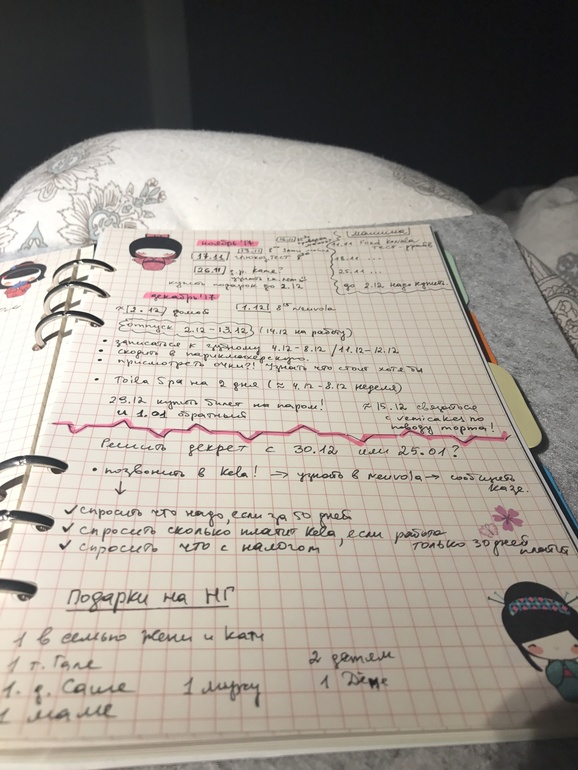 ноябрь '17
17.11 глюкоз.тест
26.11 д.р. Кати!
купить подарок до 2.12
машина
18.11
25.11 ...
до 2.12 надо купить
декабрь '17
≈ 2.12 домой
1.12 neuvola
Отпуск 2.12-13.12 (14.12 на работу)
• записаться к зубному 4.12-8.12 / 11.12-12.12
• сходить в парикмахерскую.
• присмотреть очки?! Узнать что стоит хотя бы
• Toila Spa на 2 дня (≈ 4.12-8.12 неделя)
29.12 купить билет на паром!
и 1.01 обратный
≈ 15.12 связаться
с vemcakes по
поводу торта!
Решить декрет с 30.12 или 25.01?
• позвонить в Kela! → узнать в neuvola → сообщить
Казе.
↓
✓ спросить что надо, если за 50 дней
✓ спросить сколько платит Kela, если работа
только 30 дней платит
✓ спросить что с налогом
Подарки на НГ
1 в семью Жени и Кати
1 т. Гале
2 детям
1. д. Саше 1 мужу 1 Диме
1 маме